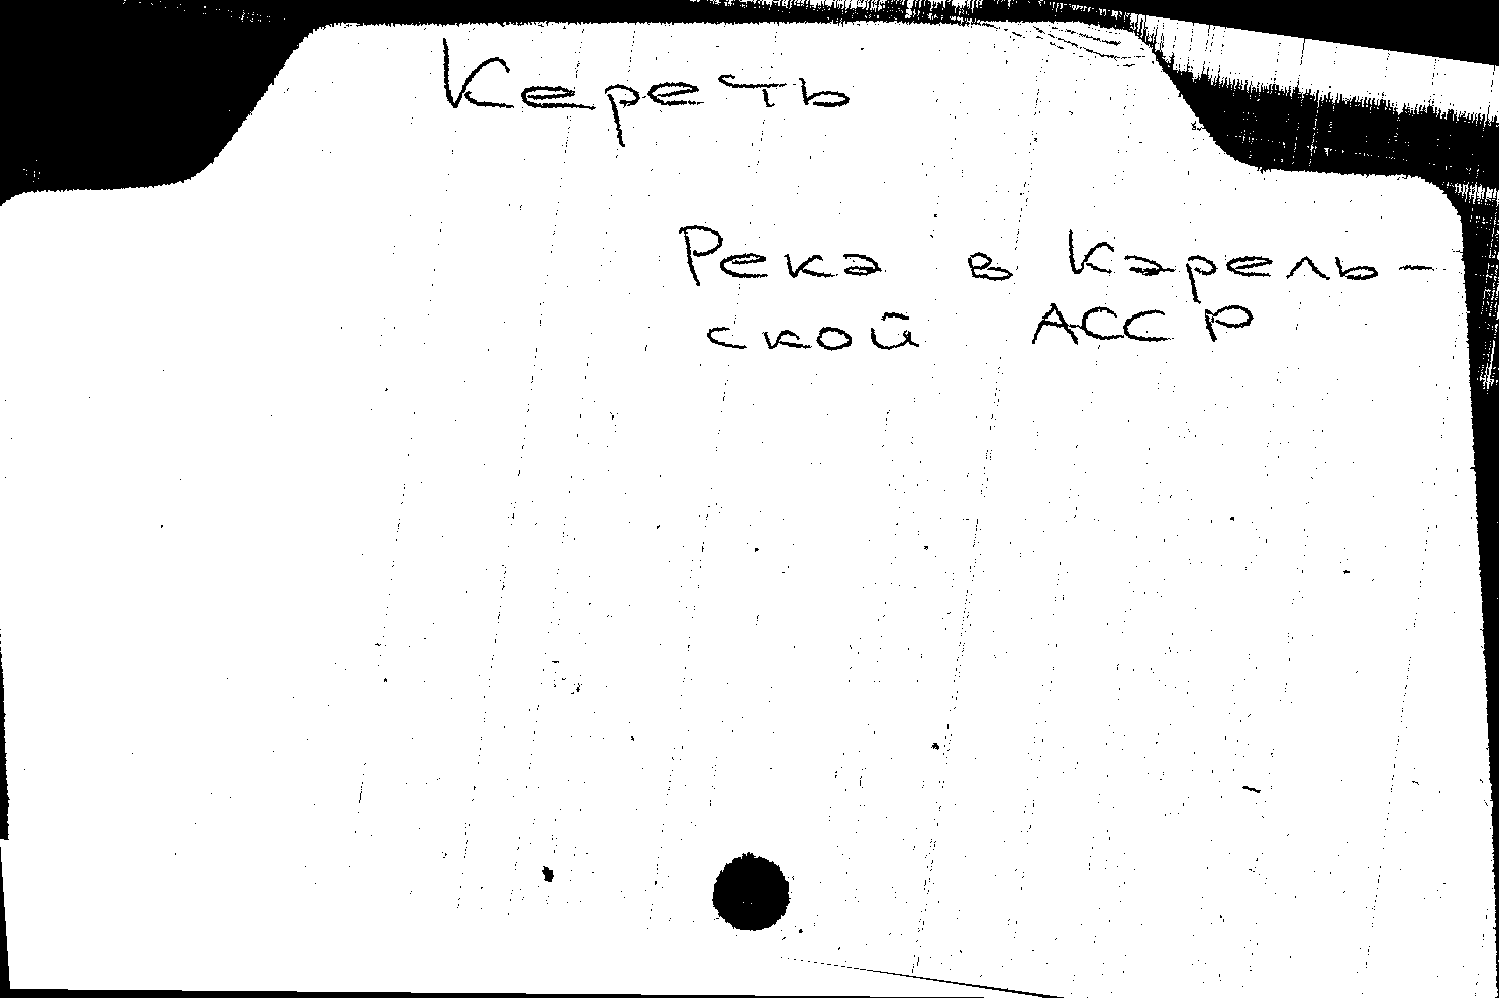 Кереть
Река в Карель-
ской АССР